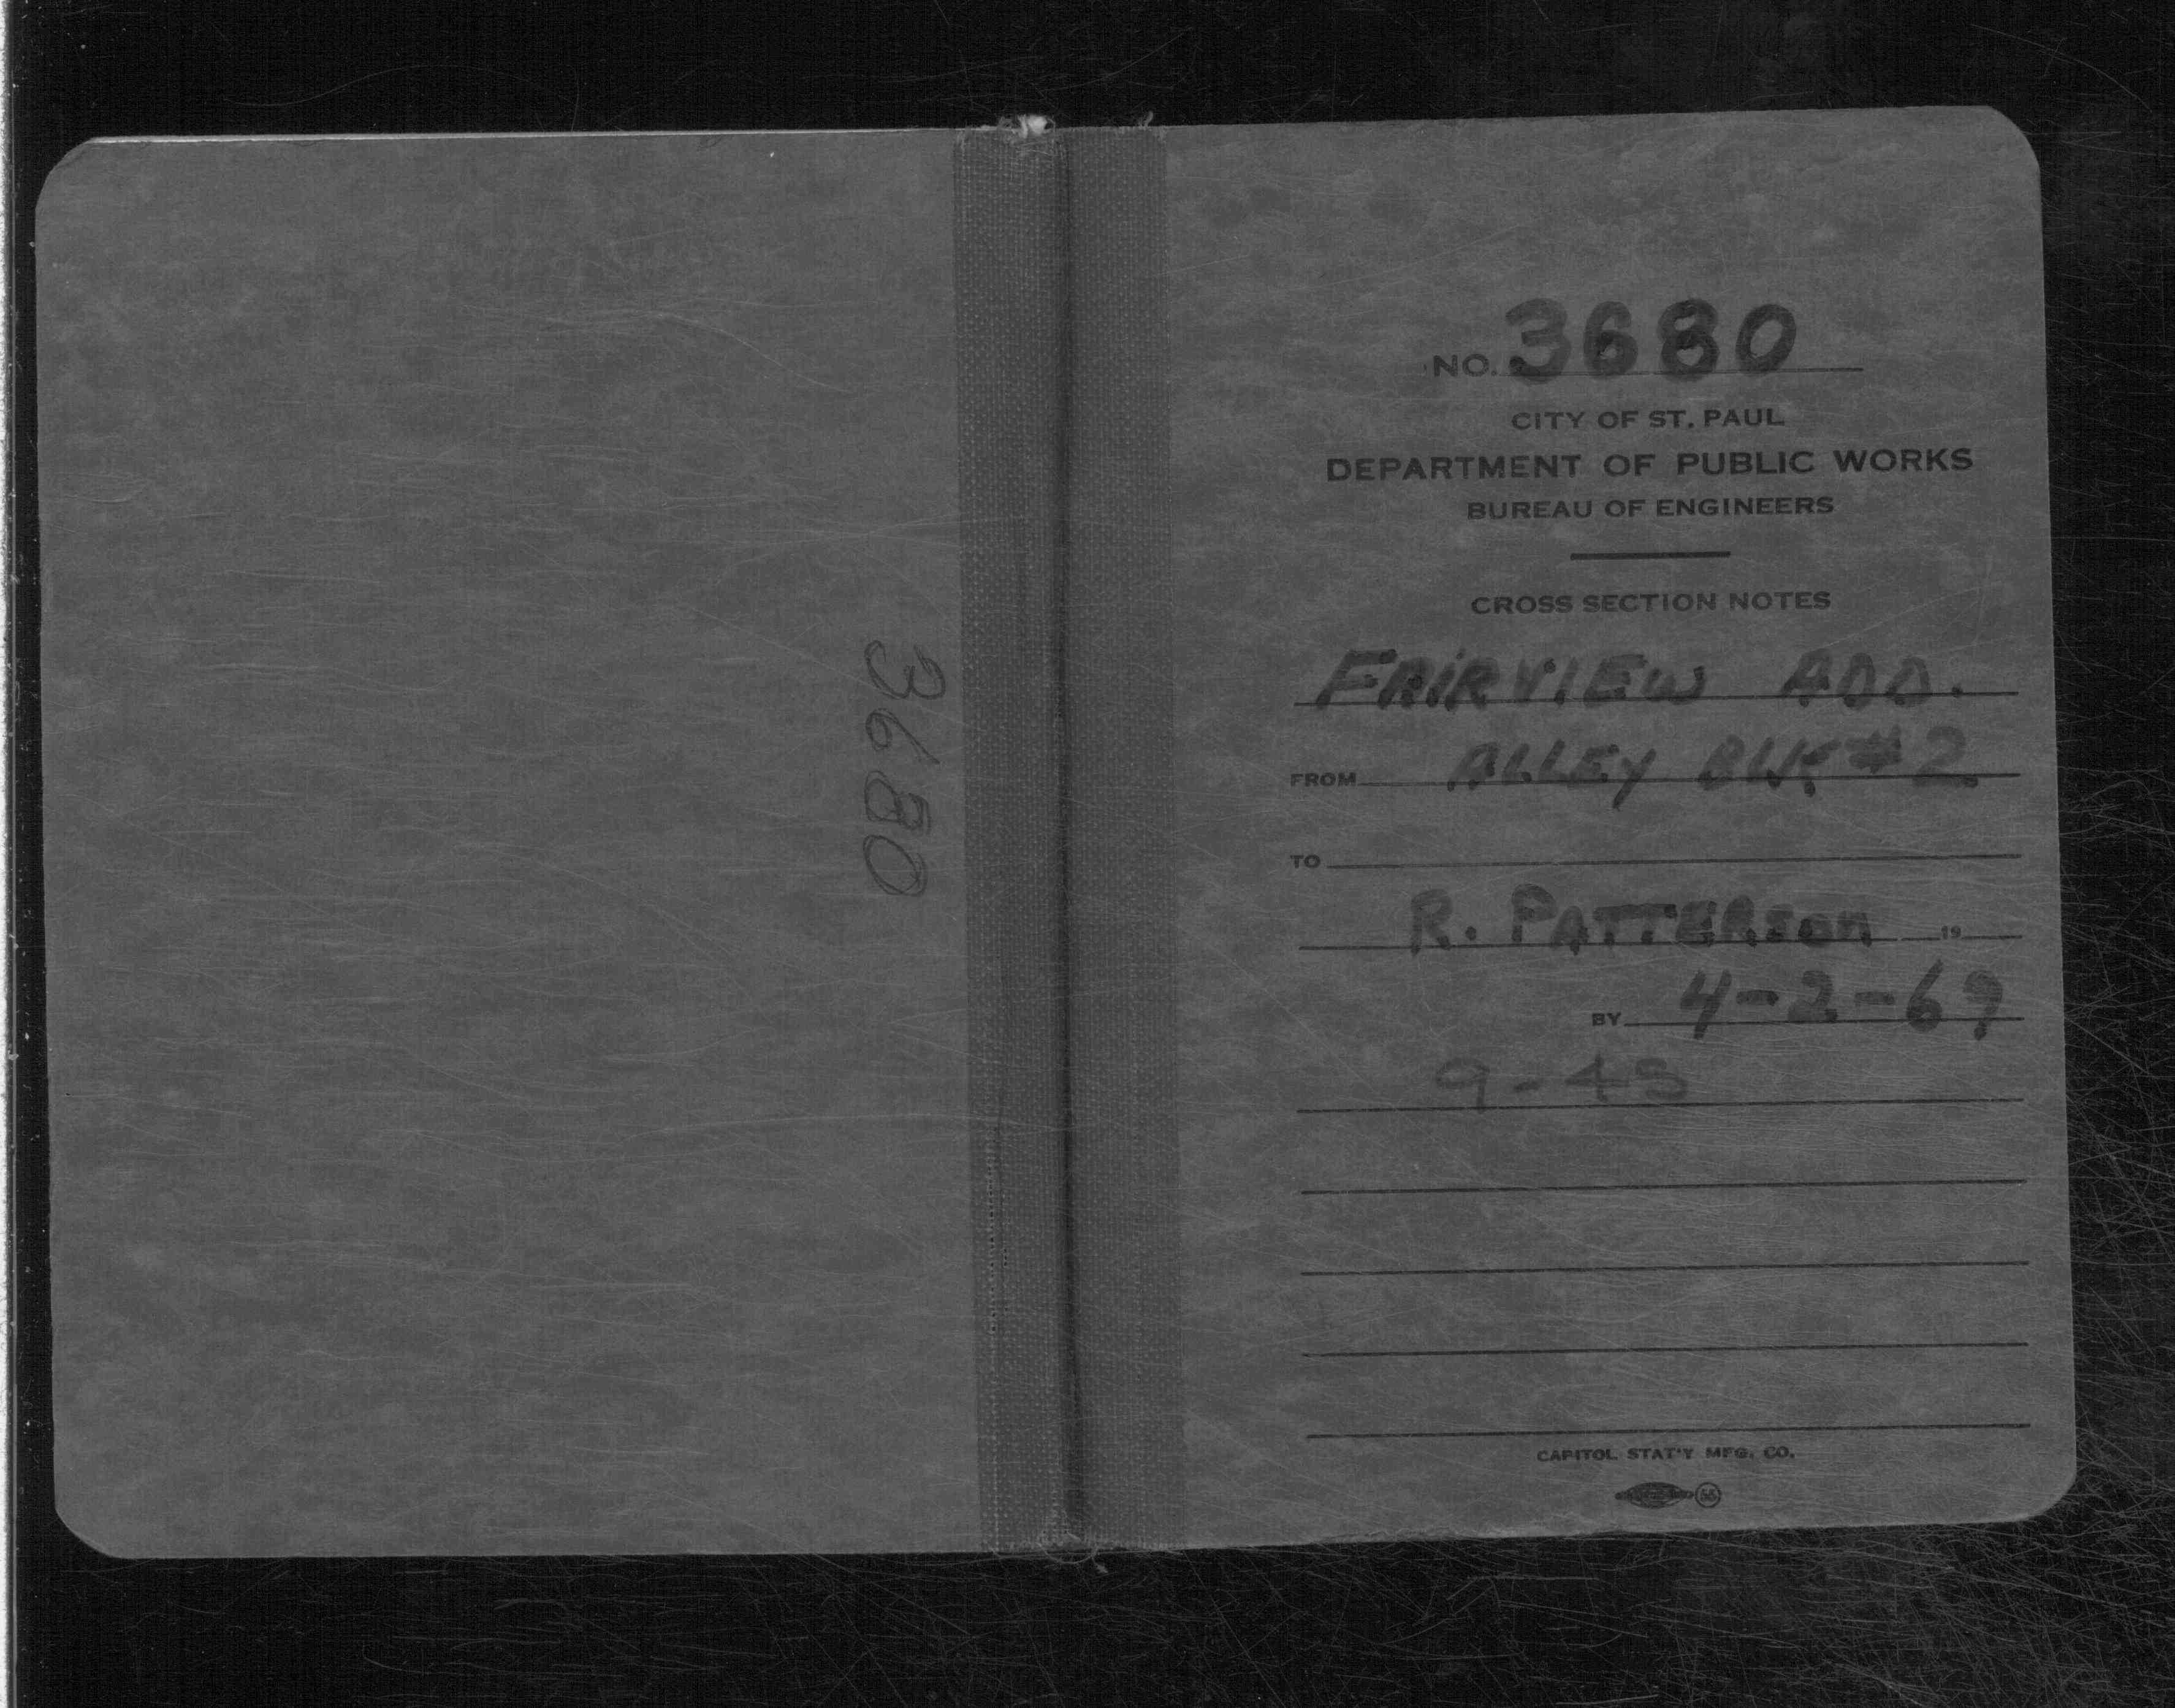 3680
NO. 3680
CITY OF ST. PAUL
DEPARTMENT OF PUBLIC WORKS
BUREAU OF ENGINEERS
CROSS SECTION NOTES
FAIRVIEW ADD.
FROM ALLEY BLK #2
TO
R. PATTERSON 19
BY 4-2-69
9-45
CAPITOL STAT'Y MFG. CO.